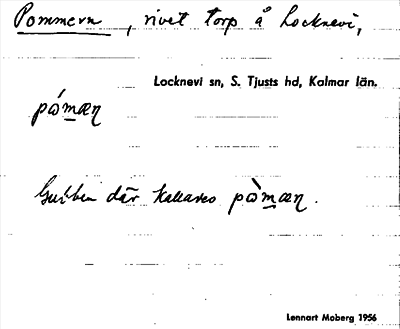 Pommern, rivet torp å Locknevi,
Locknevi sn, S. Tjusts hd, Kalmar län.
pómæɳ
Gubben där kallades pòmæɳ.
Lennart Moberg 1956